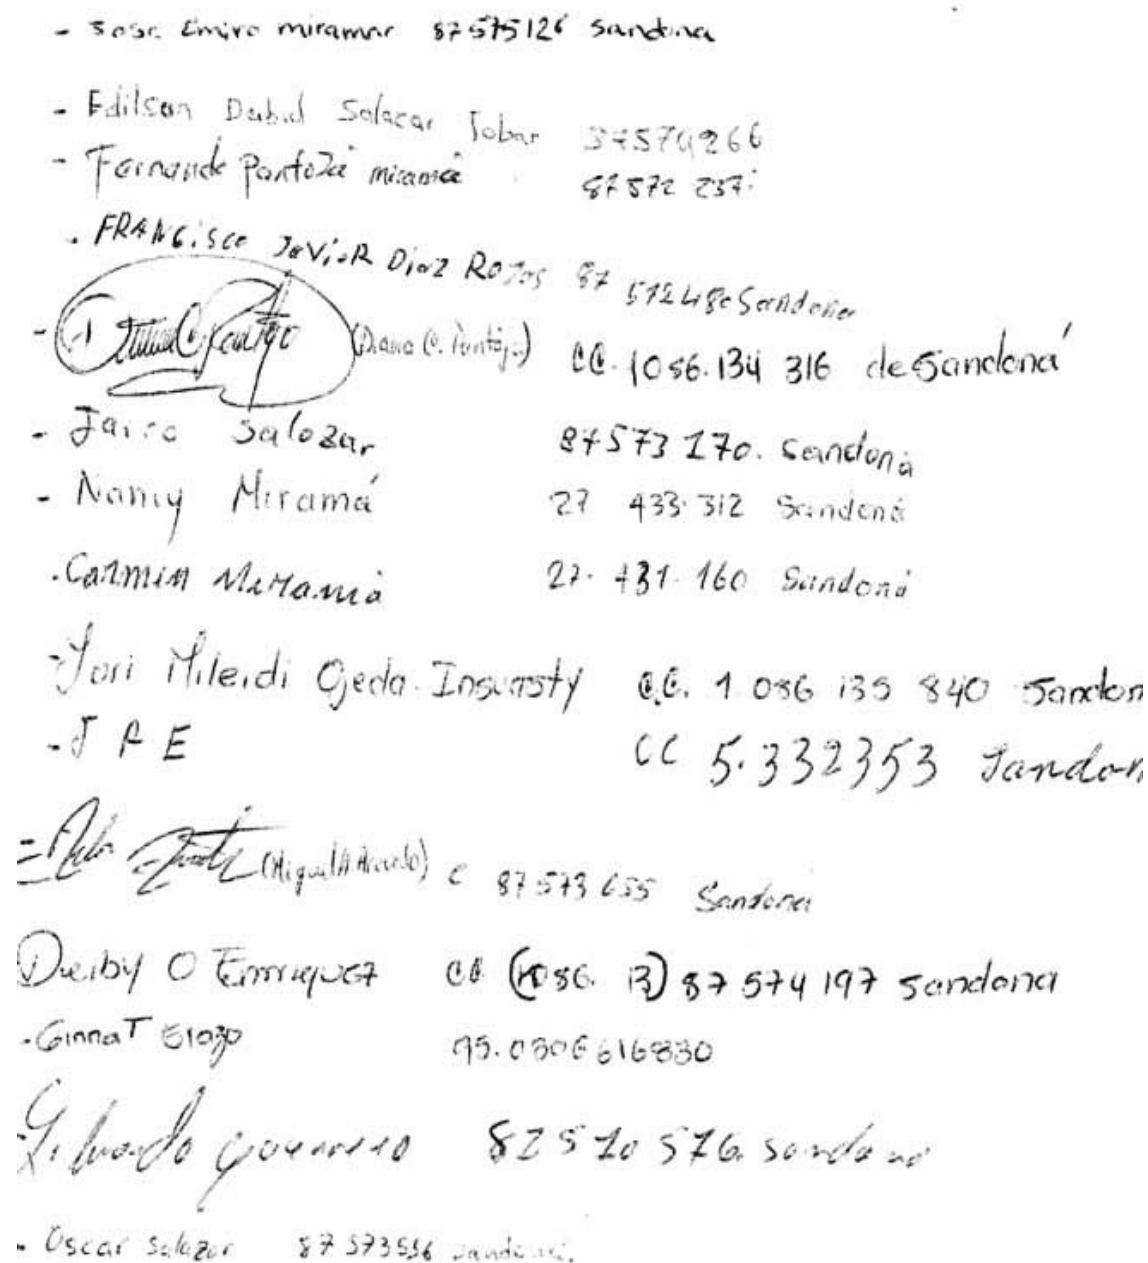 - Jose Emiro miramar 87575126 Sandona
- Edilson Dabid Salazar Tobar 37579266
- Fernando Pantoja miramá 87572 237
. FRANCisco JaVieR Diaz Rojas 87 572480 Sandona
- (Diana C. Pantoja) CC. 1086.134 316 de Sandoná
- Jairo Salazar 87573 170. Sandoná
- Nancy Miramá 27 433.312 Sandoná
. Carmen Miramá 27. 431. 160 Sandoná
- Yori Mileidi Ojeda Insuasty C.C. 1.086 135 840 Sandon
- J A E CC 5.332353 Sandon
- (Miguel A Acevedo) C 87573 655 Sandoná
Deiby O Enriquez CC (1086. 13) 87 574 197 Sandona
. Ginna T Erazo 95.0306616830
Guerrero 82 5 70 576 Sandona
- Oscar Salazar 87 573556 Sandoná.